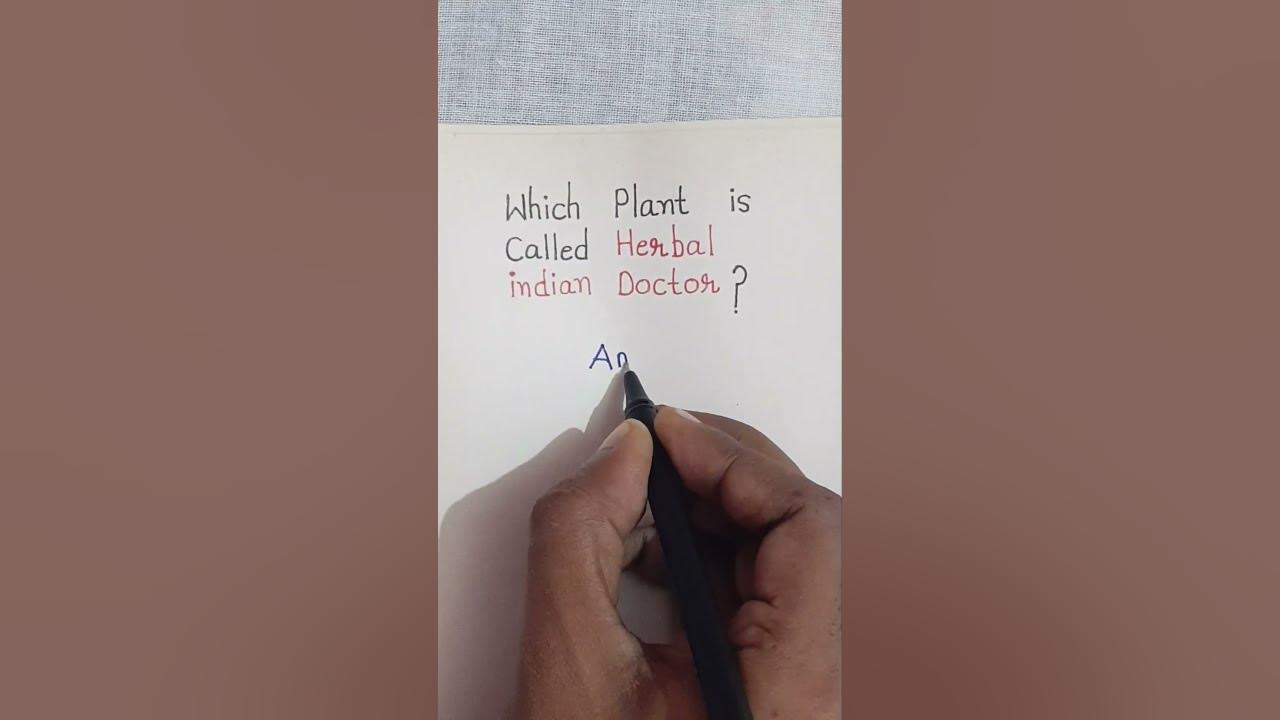 Which Plant is
Called Herbal
indian Doctor?
An